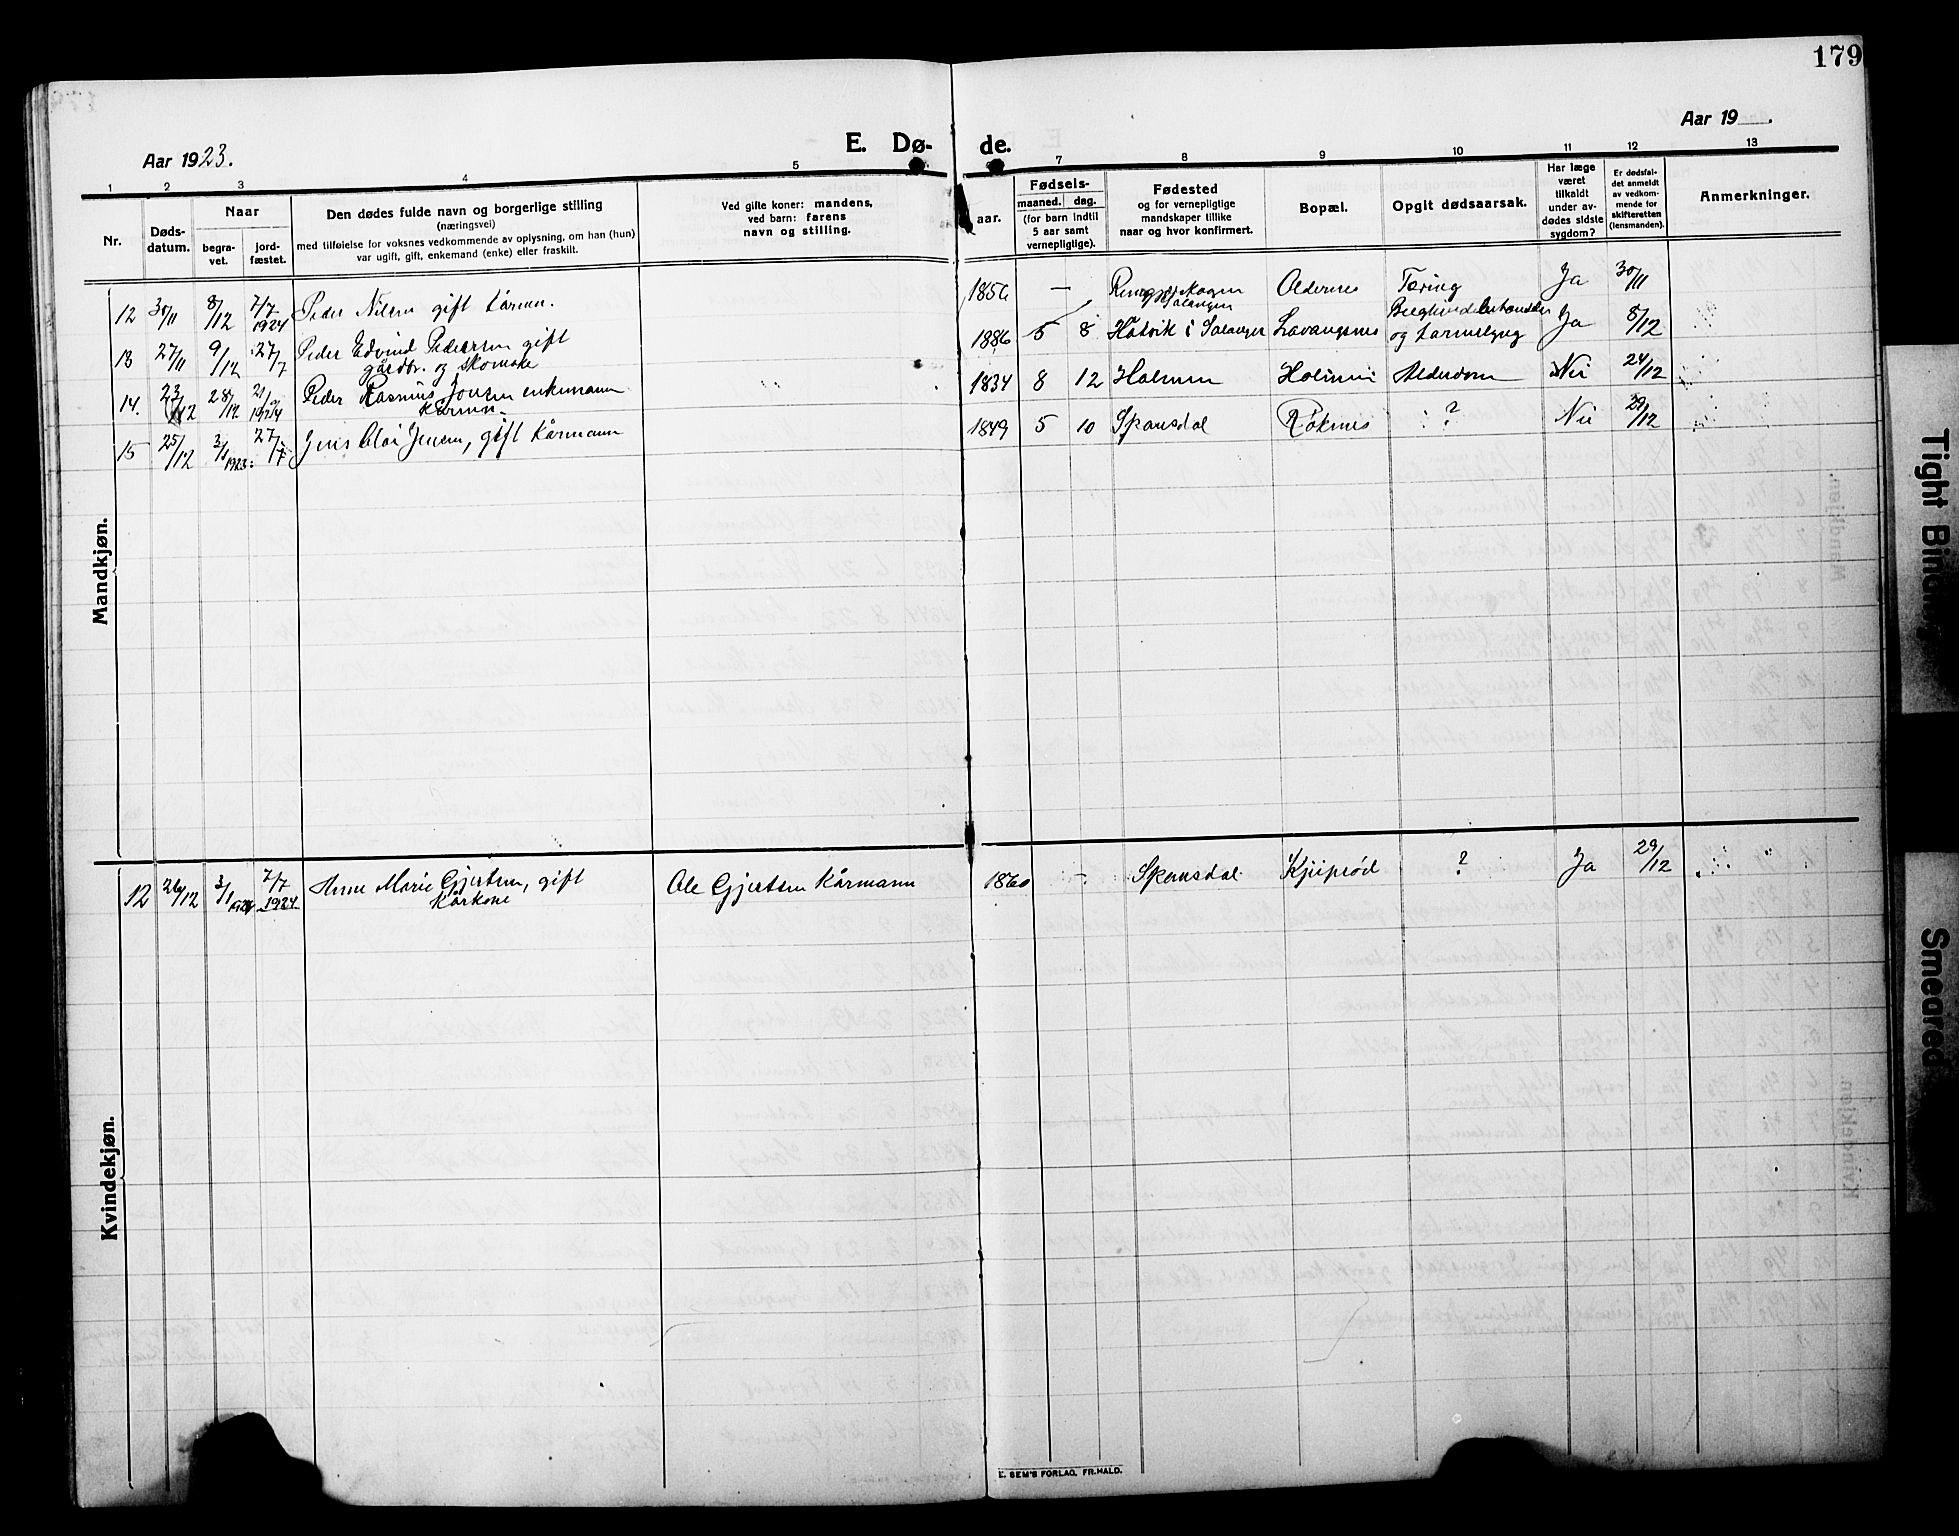 179
Aar 1923.
E. Dø-
de.
Aar 19 .
1 2 3 4 5 7 8 9 10 11 12 13
Nr.
Døds-
datum.
Naar
begra-
vet.
jord-
fæstet.
Den dødes fulde navn og borgerlige stilling
(næringsvei)
med tilføielse for voksnes vedkommende av oplysning, om han (hun)
var ugift, gift, enkemand (enke) eller fraskilt.
Ved gifte koner: mandens,
ved barn: farens
navn og stilling.
aar.
Fødsels-
maaned. dag.
(for barn indtil
5 aar samt
vernepligtige).
Fødested
og for vernepligtige
mandskaper tillike
naar og hvor konfirmert.
Bopæl.
Opgit dødsaarsak.
Har læge
været
tilkaldt
under av-
dødes sidste
sygdom?
Er dødsfal-
det anmeldt
av vedkom-
mende for
skifteretten
(lensmanden).
Anmerkninger.
Mandkjøn.
12 30/11 8/12 7/7 1924 Peder Nilsen gift kårmn. 1856 — Salangen Oldernes Tæring Ja 30/11
13 27/11 9/12 27/7 Peder Edvind Pedersen gift
gårdbr. og skomake 1886 5 8 Hatvik i Salangen Lavangsnes og tarmslyng Ja 8/12
14. 23/12 28/12 1924 Peder Rasmus Jonsen enkemann
Kårmn. 1834 8 12 Holmen Holmen Alderdom Nei 24/12
15 25/12 3/1 1923 27/7 Jens Jensen, gift kårmann 1849 5 10 Spansdal Røknes ? Nei 29/12
Kvindekjøn.
12 26/12 3/1 1924 7/7 1924 Anne Marie Gjertsen, gift
Kårkone Ole Gjertsen Kårmann 1860 - Spansdal ? Ja 29/12
E. SEM'S FORLAG, FR.HALD.
Tight Binding
Smeared